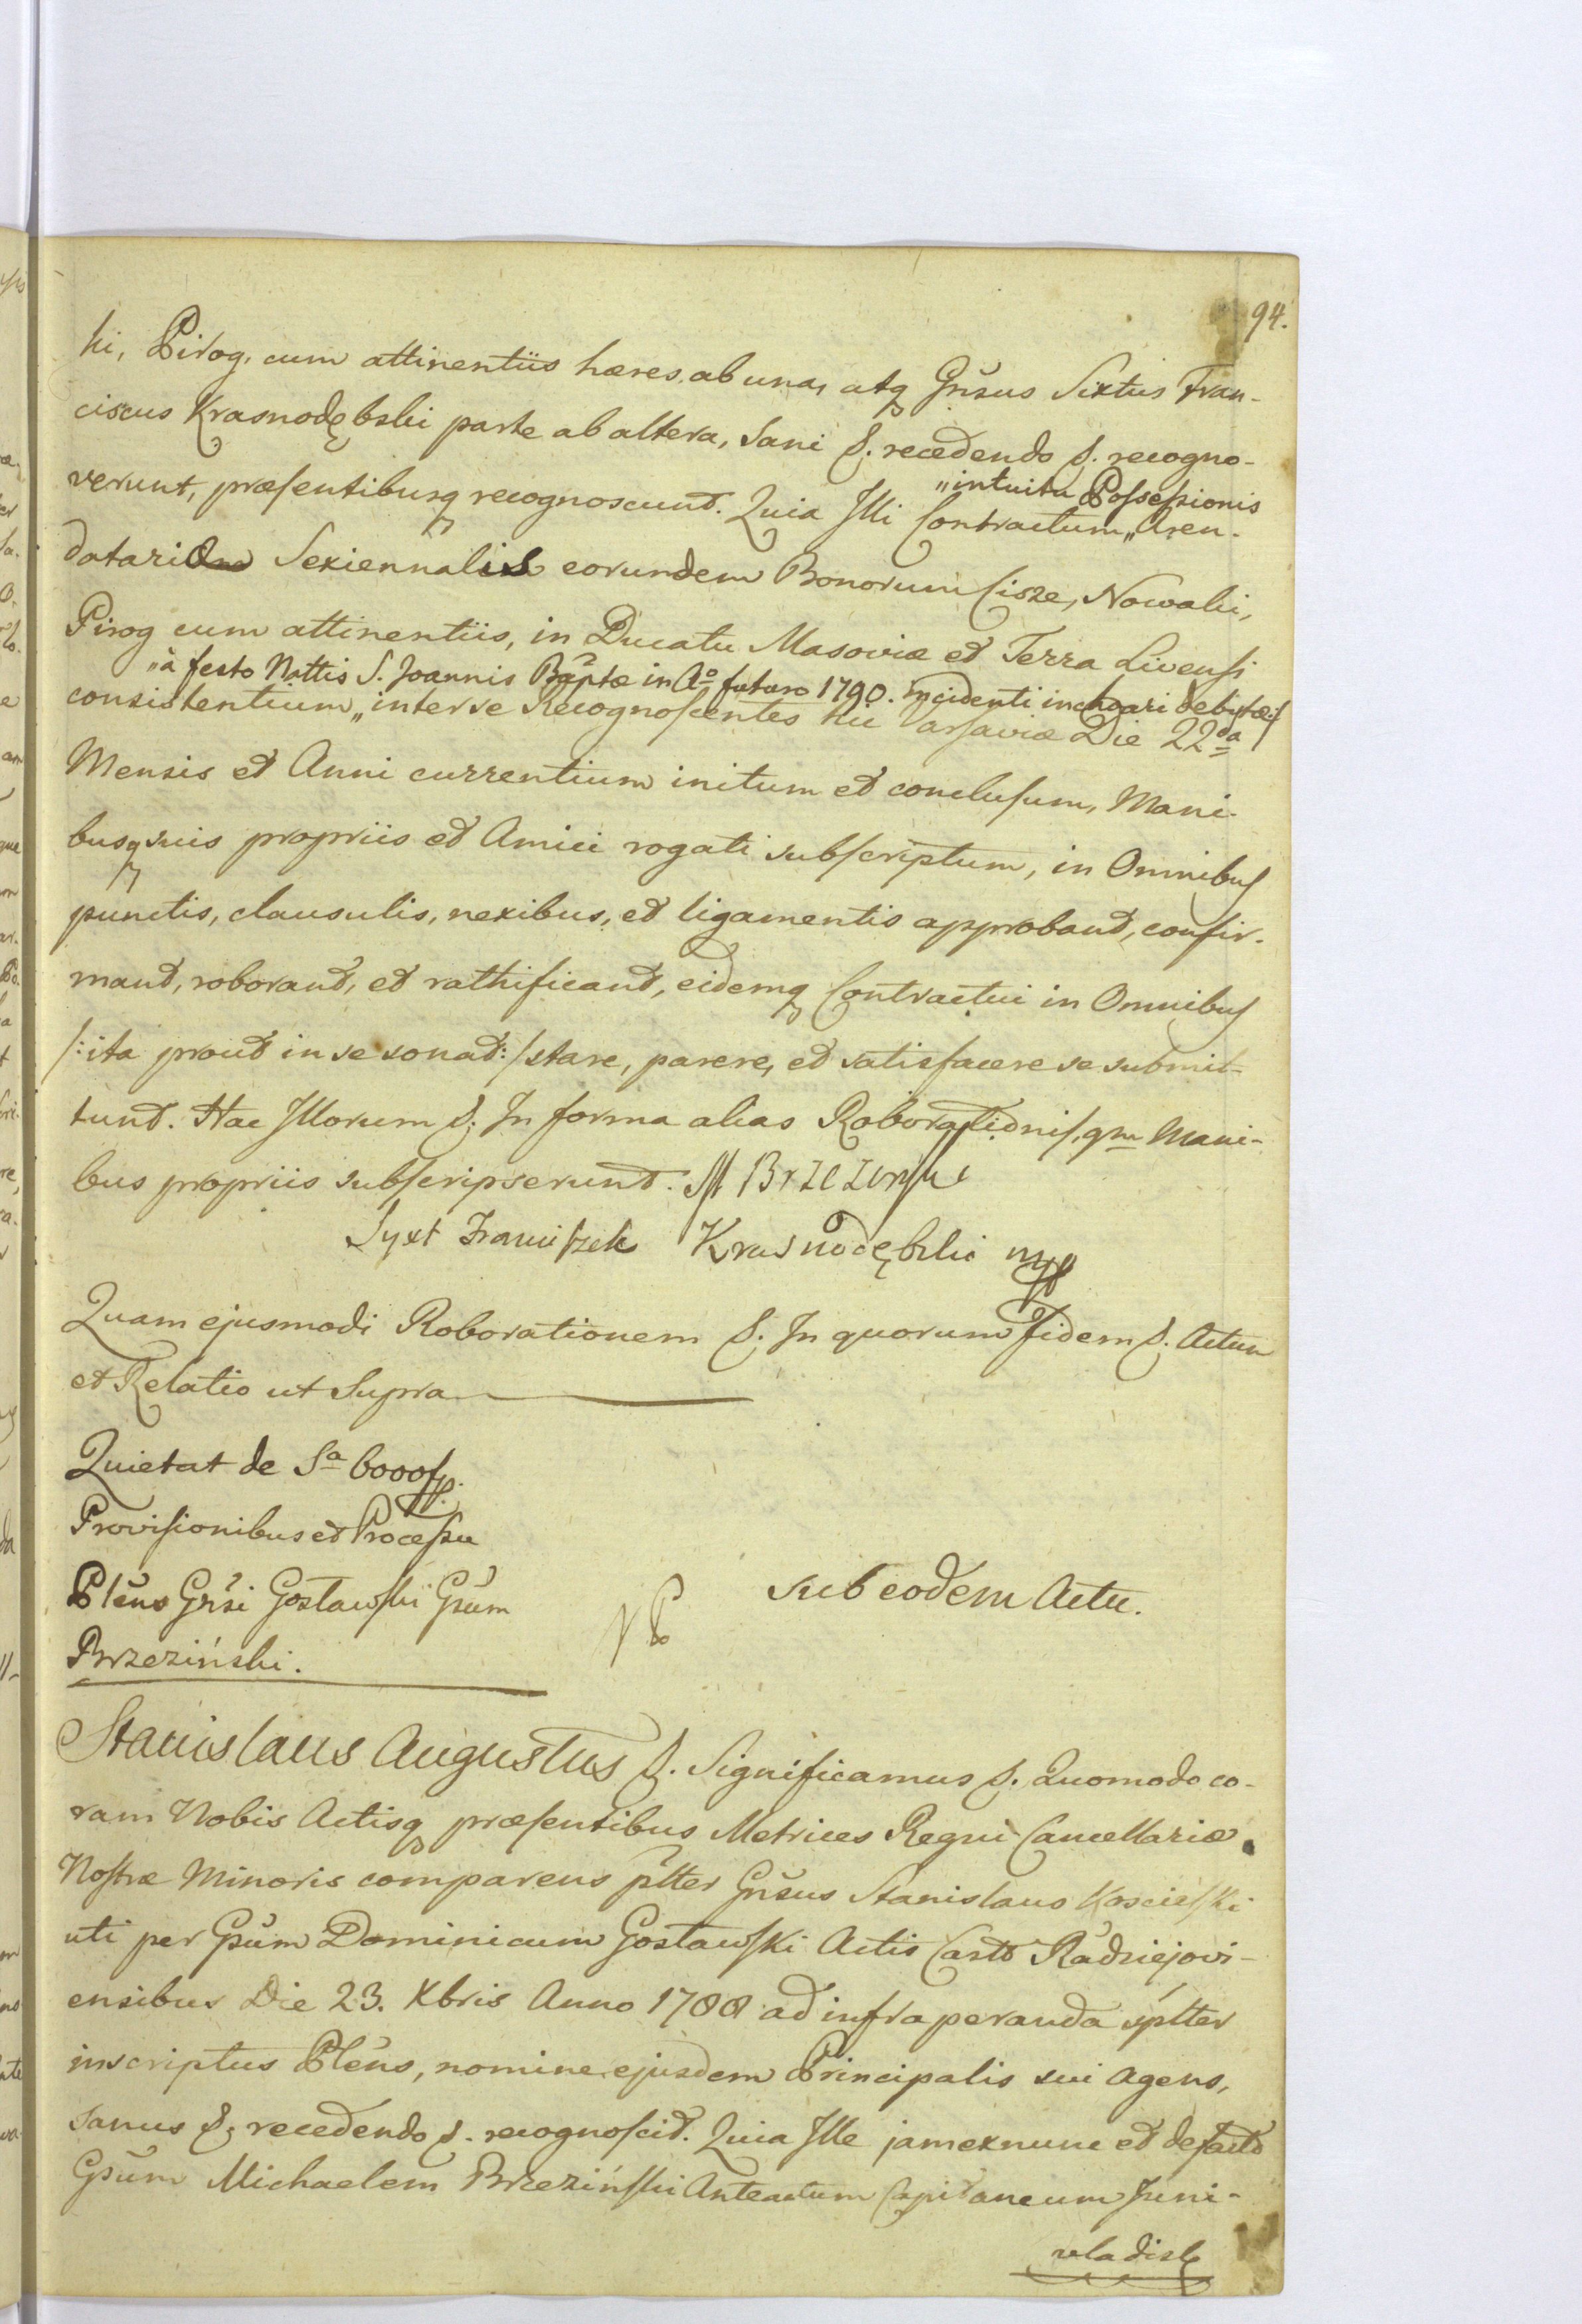 94.
ki, Pirog, cum attinentiis hæres, ab una, atq Gnsus Sixtus Fran-
ciscus Krasnodębski parte ab altera, Sani &. recedendo &. recogno-
"intuitu Possessionis
verunt, præsentibusq recognoscunt. Quia Illi Contractum „Aren-
datariae Sexiennalis eorundem Bonorum Cisze, Nowaki,
Pirog cum attinentiis, in Ducatu Masoviæ et Terra Livensi
"à festo Nattis S. Joannis Baptæ in Ao futuro 1790. incidenti inchoari debitæ:/
consistentium „inter se Recognoscentes hic Varsaviæ Die 22da
Mensis et Anni currentium initum et conclusum, Mani-
busq suis propriis et Amici rogati subscriptum, in Omnibus
punctis, clausulis, nexibus, et ligamentis approbant, confir-
mant, roborant, et rathificant, eidemq Contractui in Omnibus
/:ita prout in se sonat:/ stare, parere, et satisfacere se submit-
tunt. Hac Illorum &. In forma alias Roborationis, qm Mani-
bus propriis subscripserunt. M Brzezinski
Syxt Franciszek Krasnodębski mp
Quam ejusmodi Roborationem &. In quorum Fidem &. Actum
et Relatio ut Supra
Quietat de Sa 6000 fp.
Provisionibus et Processu
Plens Gnsi Gostawski Gsum
Brzeziński.
sub eodem Actu.
Stanislaus Augustus &. Significamus &. Quomodo co-
ram Nobis Actisq præsentibus Metrices Regni Cancellariæ
Nostræ Minoris comparens pltter Gnsus Stanislaus Koscielski
uti per Gsum Dominicum Gostawski Actis Castr Radziejovi-
ensibus Die 23. Xbris Anno 1788 ad infra peranda spltter
inscriptus Plens, nomine ejusdem Principalis sui agens,
sanus &. recedendo &. recognoscit. Quia Ille jam ex nunc et de facto
Gsum Michaelem Brzeziński Anteactum Capitaneum Juni-
vladisl